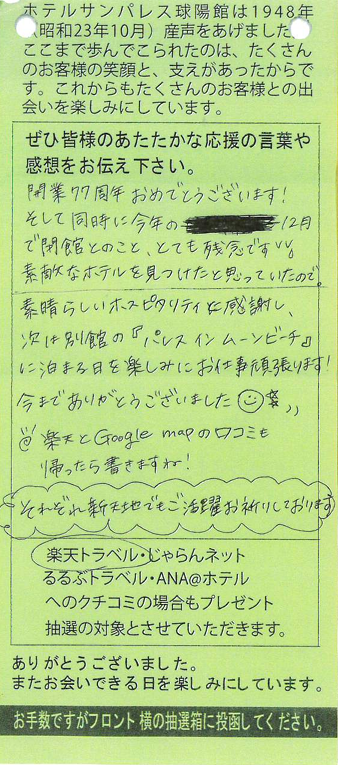 ホテルサンパレス球陽館は1948年
(昭和23年10月)産声をあげました。
ここまで歩んでこられたのは、たくさん
のお客様の笑顔と、支えがあったからで
す。これからもたくさんのお客様との出
会いを楽しみにしています。
ぜひ皆様のあたたかな応援の言葉や
感想をお伝え下さい。
開業77周年おめでとうございます!
そして同時に今年の 12月
で閉館とのこと、とても残念です
素敵なホテルを見つけたと思っていたので。
素晴らしいホスピタリティに感謝し、
次は別館の『パレス イン ムーンビーチ』
に泊まる日を楽しみにお仕事頑張ります!
今までありがとうございました
@楽天とGoogle mapの口コミも
帰ったら書きますね!
それぞれ新天地でもご活躍お祈りしております
楽天トラベル・じゃらんネット
るるぶトラベル・ANA@ホテル
へのクチコミの場合もプレゼント
抽選の対象とさせていただきます。
ありがとうございました。
またお会いできる日を楽しみにしています。
お手数ですがフロント 横の抽選箱に投函してください。